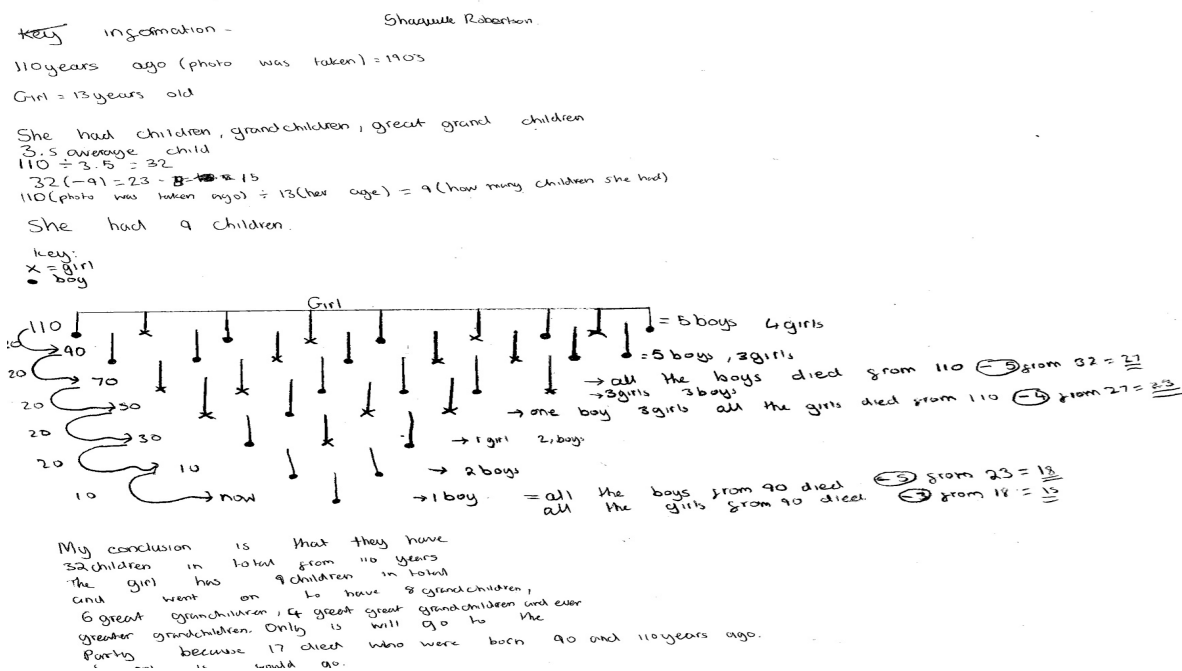 Key information -
Shaquille Robertson
110 years ago (photo was taken) = 1903
Girl = 13 years old
She had children, grandchildren, great grand children
3.5 average child
110 ÷ 3.5 = 32
32 (-9) = 23 - 15
110 (photo was taken ago) ÷ 13 (her age) = 9 (how many children she had)
She had 9 children.
key:
x = girl
• boy
Girl
110 = 5 boys 4 girls
20 90 = 5 boys, 3 girls
20 70 → all the boys died from 110 -5 from 32 = 27
→ 3 girls 3 boys
20 50 → one boy 3 girls all the girls died from 110 -4 from 27 = 23
20 30 → 1 girl 2, boys
20 10 → 2 boys
10 now → 1 boy = all the boys from 90 died -5 from 23 = 18
all the girls from 90 died. -3 from 18 = 15
My conclusion is that they have
32 children in total from 110 years
The girl has 9 children in total
and went on to have 8 grandchildren,
6 great granchildren, 4 great great grandchildren and ever
greater grandchildren. Only 15 will go to the
Party because 17 died who were born 90 and 110 years ago.
would go.